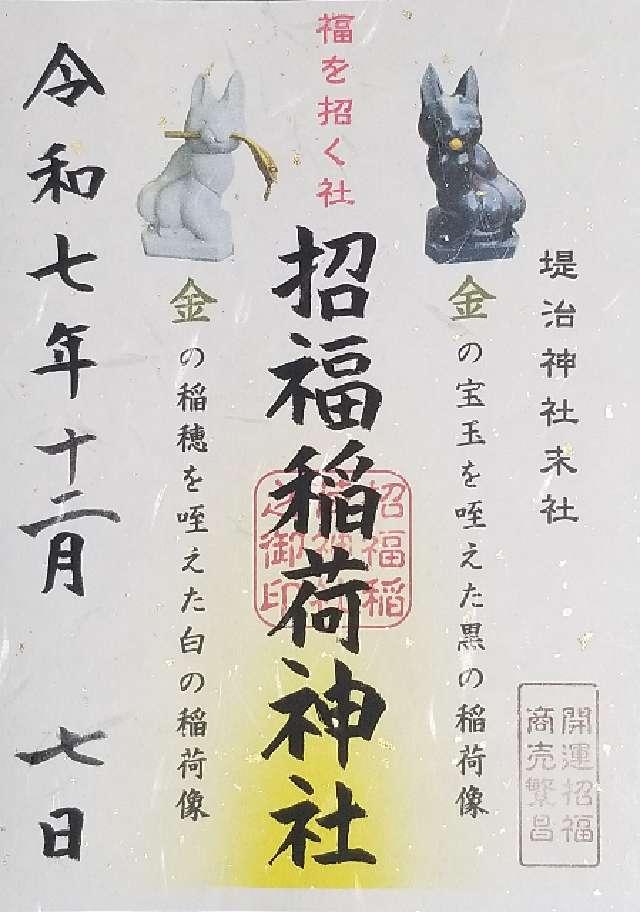 福を招く社
堤治神社末社
金の宝玉を咥えた黒の稲荷像
招福稲荷神社
招福稲
荷神社
之御印
金の稲穂を咥えた白の稲荷像
令和七年十二月 七日
開運招福
商売繁昌